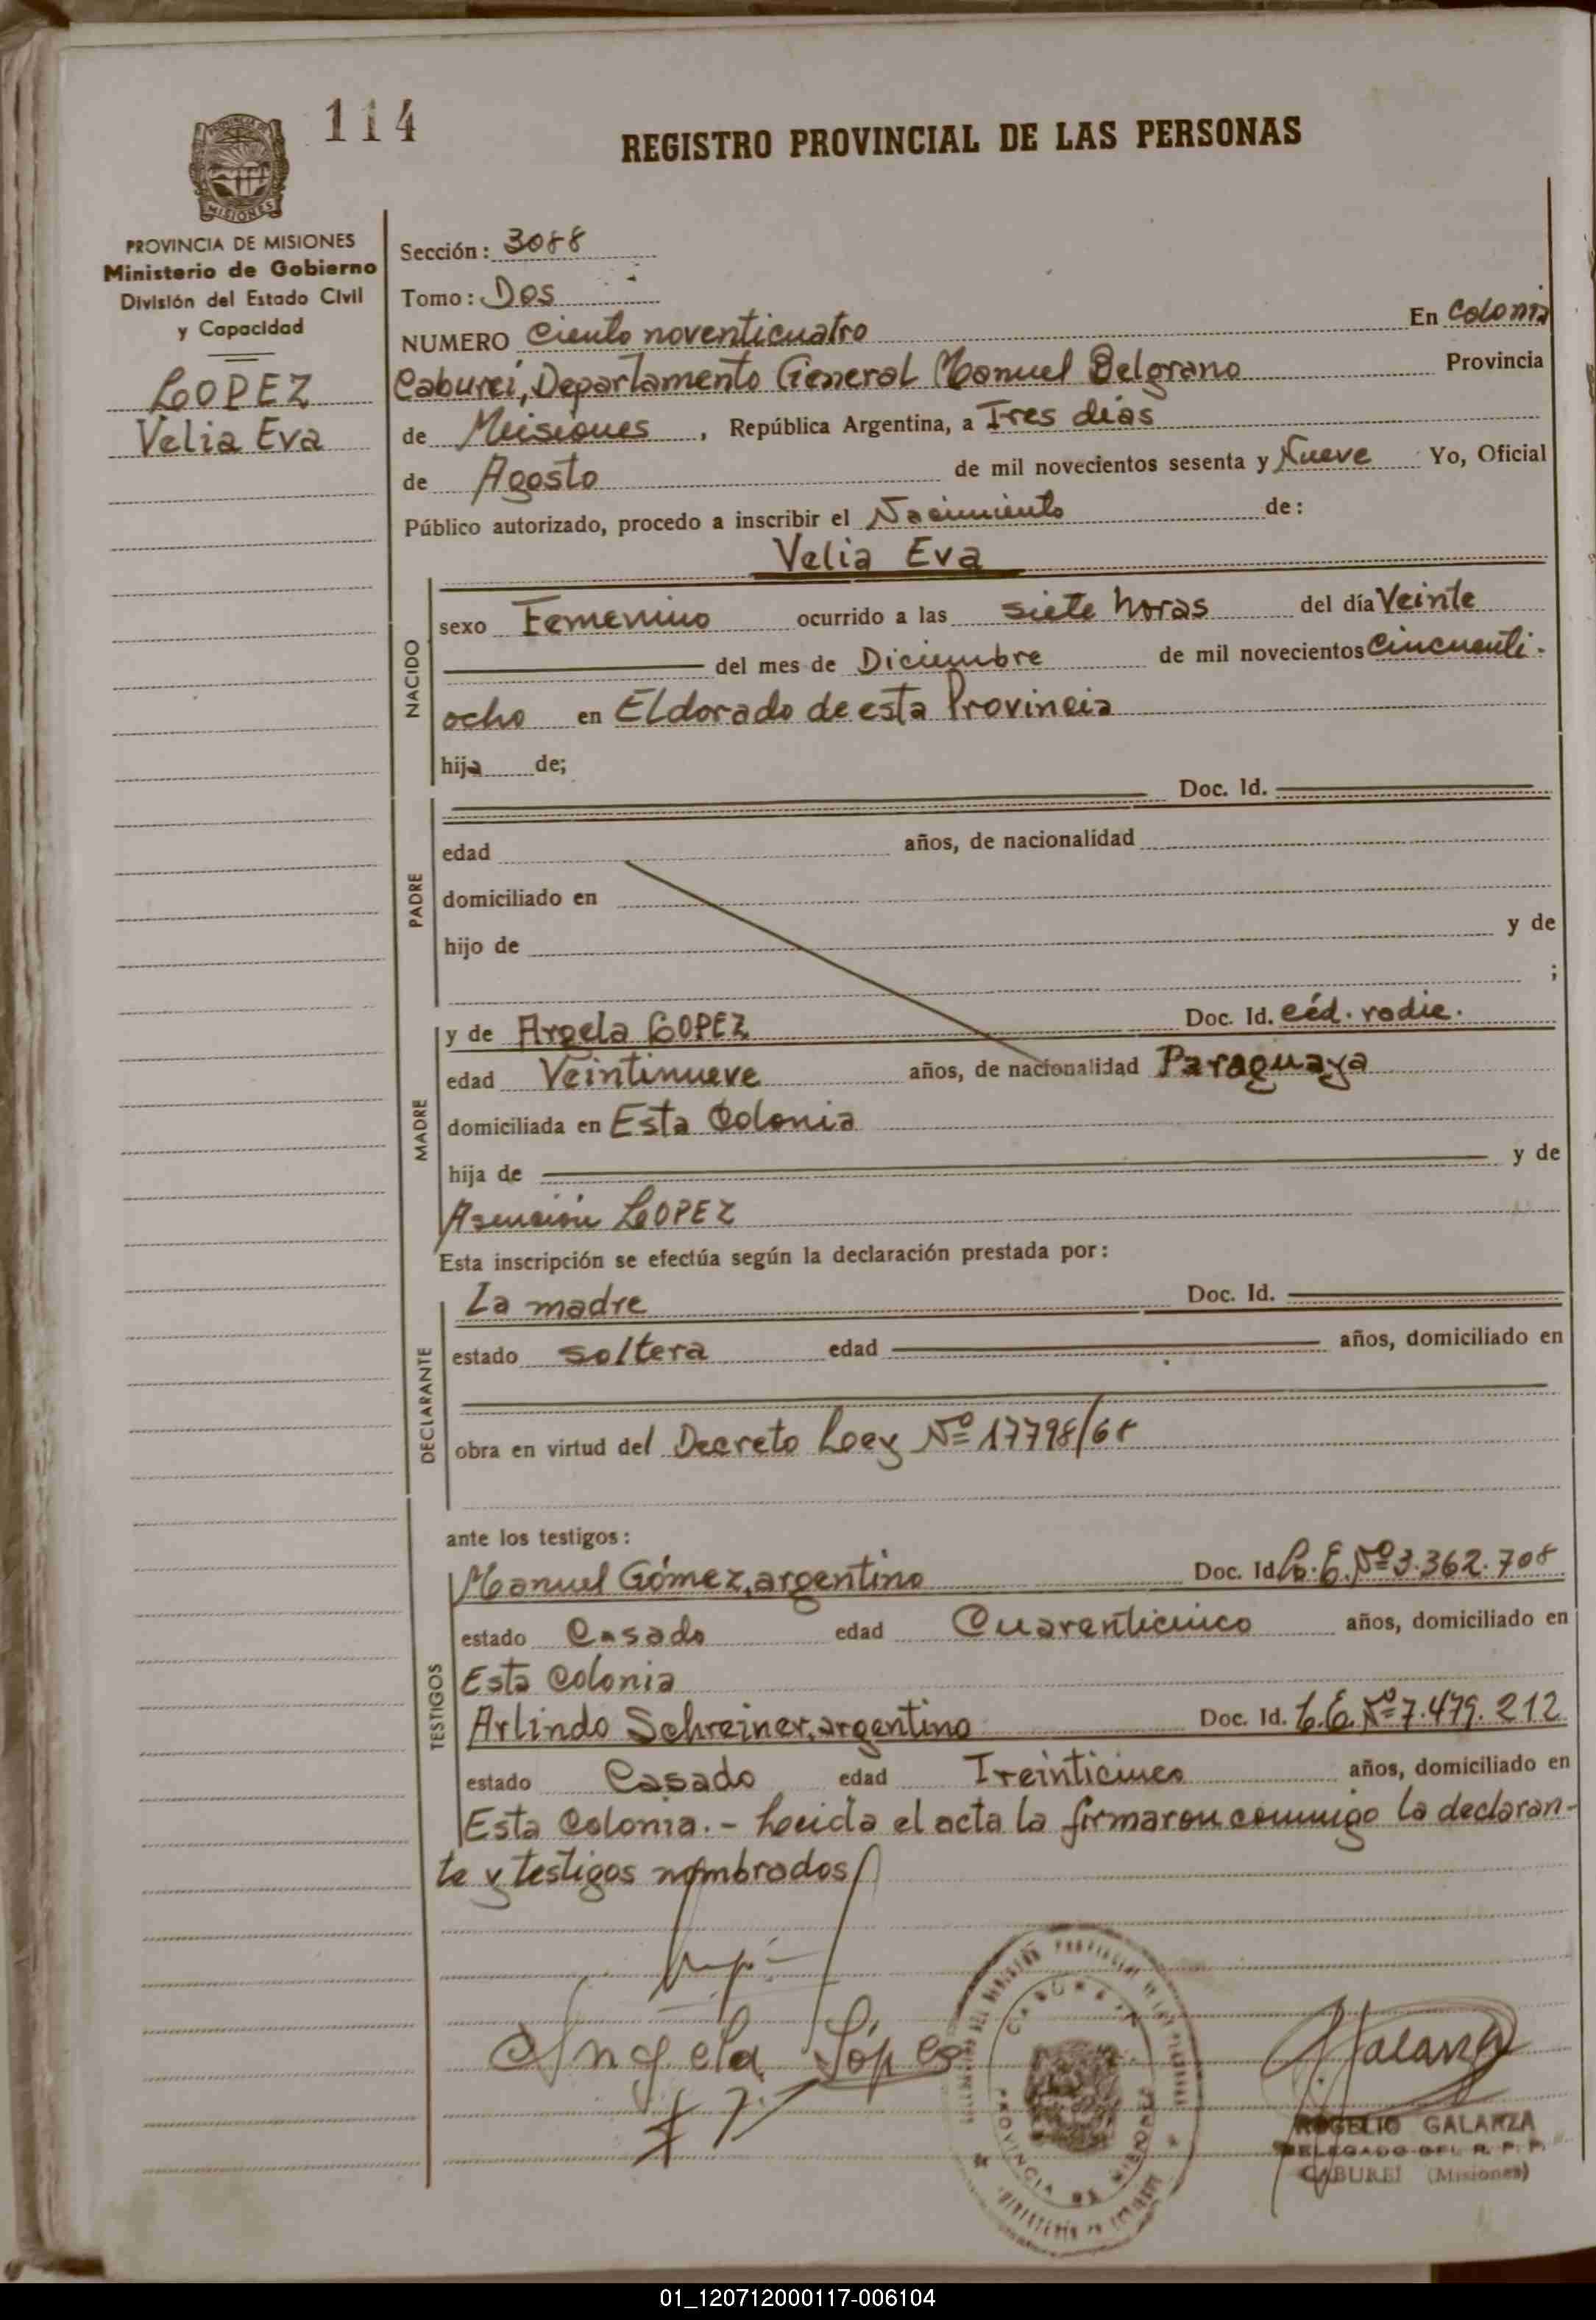 114
REGISTRO PROVINCIAL DE LAS PERSONAS
PROVINCIA DE MISIONES
Ministerio de Gobierno
División del Estado Civil
y Capacidad
LOPEZ
Velia Eva
Sección: 3088
Tomo: Dos
NUMERO Ciento noventicuatro En Colonia
Caburei, Departamento General Manuel Belgrano Provincia
de Misiones, República Argentina, a Tres días
de Agosto de mil novecientos sesenta y Nueve Yo, Oficial
Público autorizado, procedo a inscribir el Nacimiento de:
Velia Eva
NACIDO
sexo Femenino ocurrido a las siete horas del día Veinte
del mes de Diciembre de mil novecientos Cincuenti-
ocho en Eldorado de esta Provincia
hija de;
PADRE
Doc. Id.
edad años, de nacionalidad
domiciliado en
hijo de y de
;
MADRE
y de Argela LOPEZ Doc. Id. Céd. radic.
edad Veintinueve años, de nacionalidad Paraguaya
domiciliada en Esta Colonia
hija de y de
Asención LOPEZ
Esta inscripción se efectúa según la declaración prestada por:
DECLARANTE
La madre Doc. Id.
estado soltera edad años, domiciliado en
obra en virtud del Decreto Ley Nº 17798/68
ante los testigos:
TESTIGOS
Manuel Gómez, argentino Doc. Id. L.E. Nº 3.362.708
estado Casado edad Cuarenticinco años, domiciliado en
Esta Colonia
Arlindo Schreiner, argentino Doc. Id. L.E. Nº 7.479.212
estado Casado edad Treinticinco años, domiciliado en
Esta Colonia.- Leida el acta la firmaron conmigo la declaran-
te y testigos nombrados
Angela López
Galarza
PROVINCIA DE MISIONES
ROGELIO GALARZA
DELEGADO DEL R. P. P.
CABUREI (Misiones)
01_120712000117-006104